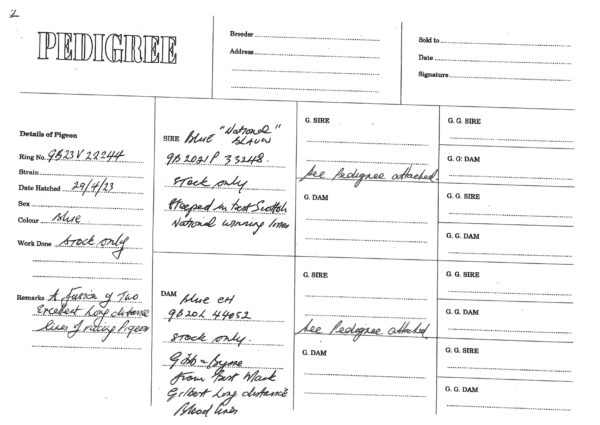 2
PEDIGREE
Breeder
Address
Sold to
Date
Signature
Details of Pigeon
Ring No. GB23V22244
Strain
Date Hatched 29/4/23
Sex
Colour Blue
Work Done Stock only
Remarks A fusion of Two
Excellent Long distance
lines of racing Pigeon
SIRE Blue "National"
BLAUW
GB2021P 33248.
Stock only
Steeped in East Scottish
National winning lines
DAM Blue CH
GB20L 44052
Stock only.
from East Mark
Gilbert Long distance
Blood lines
G. SIRE
See Pedigree attached.
G. DAM
G. SIRE
See Pedigree attached
G. DAM
G. G. SIRE
G. G. DAM
G. G. SIRE
G. G. DAM
G. G. SIRE
G. G. DAM
G. G. SIRE
G. G. DAM